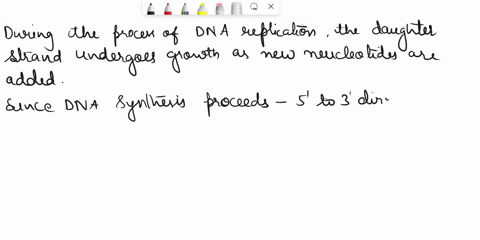 During the proces of DNA replication, the daughter
strand undergoes growth as new neucleotides are
added.
Since DNA synthesis proceeds - 5' to 3' dir